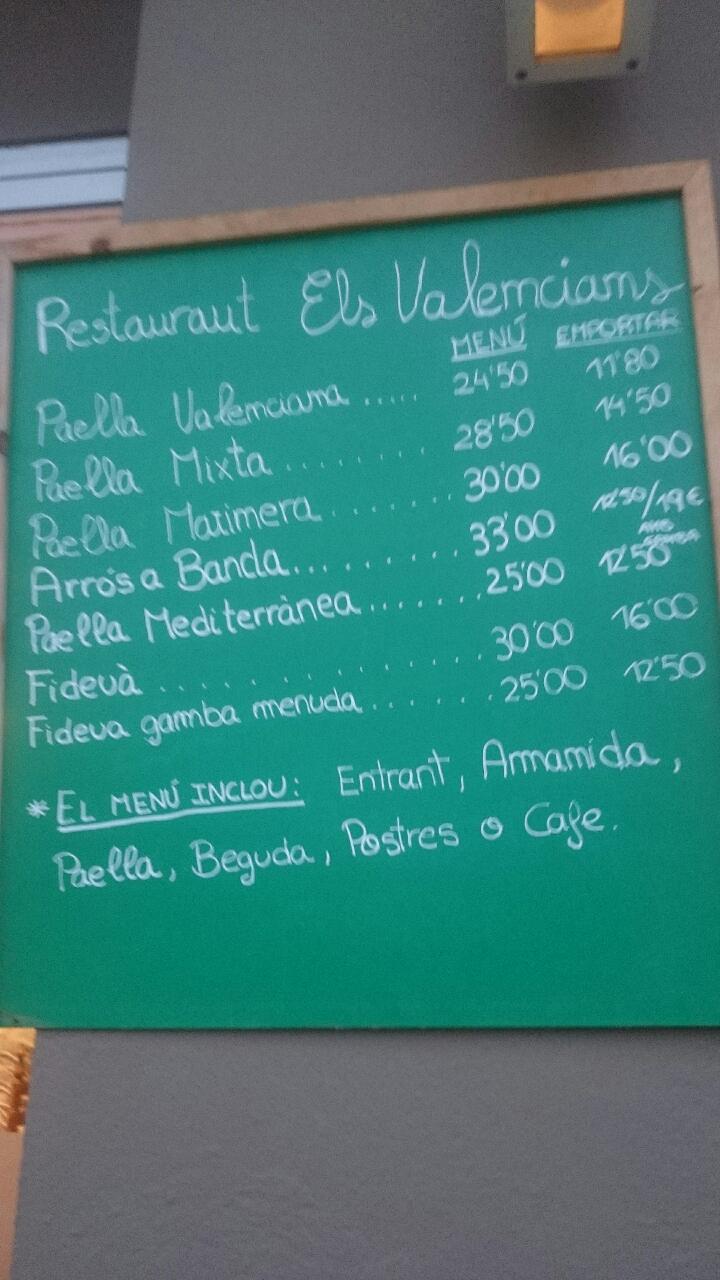 Restaurant Els Valencians
MENÚ EMPORTAR
Paella Valenciana ..... 24'50 11'80
Paella Mixta ........ 28'50 14'50
Paella Marinera ....... 30'00 16'00
Arrós a Banda ......... 33'00 12'50/19€
AMB GAMBA
Paella Mediterrànea ....... 25'00 12'50
Fidevà ............... 30'00 16'00
Fideva gamba menuda ....... 25'00 12'50
* EL MENÚ INCLOU: Entrant, Amanida,
Paella, Beguda, Postres o Cafe.